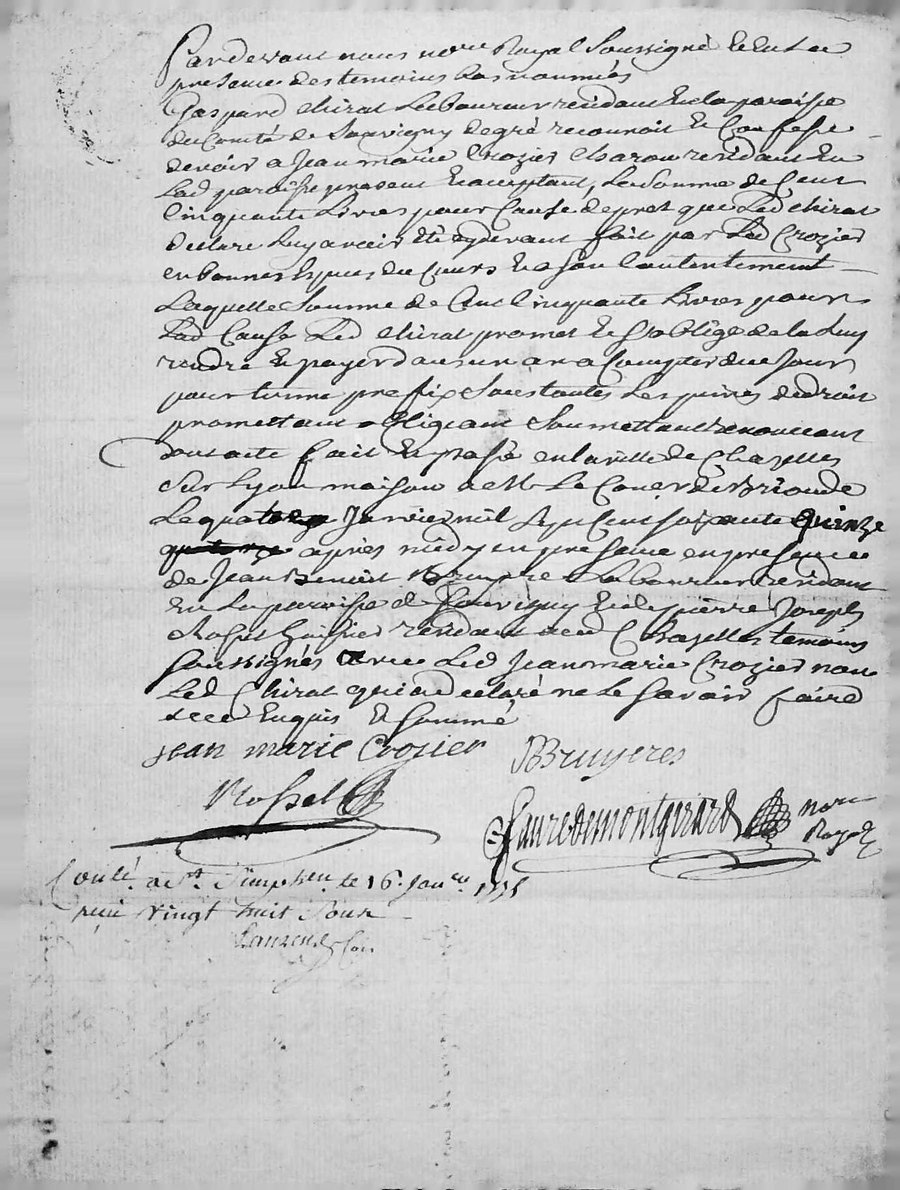 Pardevant nous nore Royal Soussigné Et En La
presence des temoins bas nommés
Gaspard chirat Laboureur residant En la paroisse
du Comté de Souvigny de gré reconnoit Et Confesse
devoir a Jean marie Crozier charon residant En
Lad paroisse present Et acceptant, La Somme de Cent
Cinquante Livres pour Cause de pret que Led chirat
declare Luy avoir Eté cydevant fait par Led Crozier
en bonnes Especes du Cours Et a Son Contentement
Laquelle Somme de Cent Cinquante Livres pour
Lad Cause Led chirat promet Et S'oblige de la Luy
rendre Et payer dans un an a Compter de ce Jour
pour terme prefix Sous toutes Les peines de droit
promettant obligeant Soumettant Renoncant
dont acte fait Et passé en la ville de Chazelles
Sur Lyon maison de Mr Le Coner de Brioude
Le Janvier mil Sept Cent soixante quinze
apres midy en presence en presence
de Jean Benoit Bruyere Laboureur residant
En La paroisse de Souvigny Et de pierre Joseph
residant aud Chazelles temoins
Soussignés avec Led Jean marie Crozier non
Led Chirat qui a declaré ne Le Savoir faire
de ce Enquis Et Sommé
jean marie Crozier JBBruyeres
Rossel
Faure de montgirard nore
Royal
Conlé. a St. Simphen. le 16. Janer. 1775
reçu vingt huit Sous